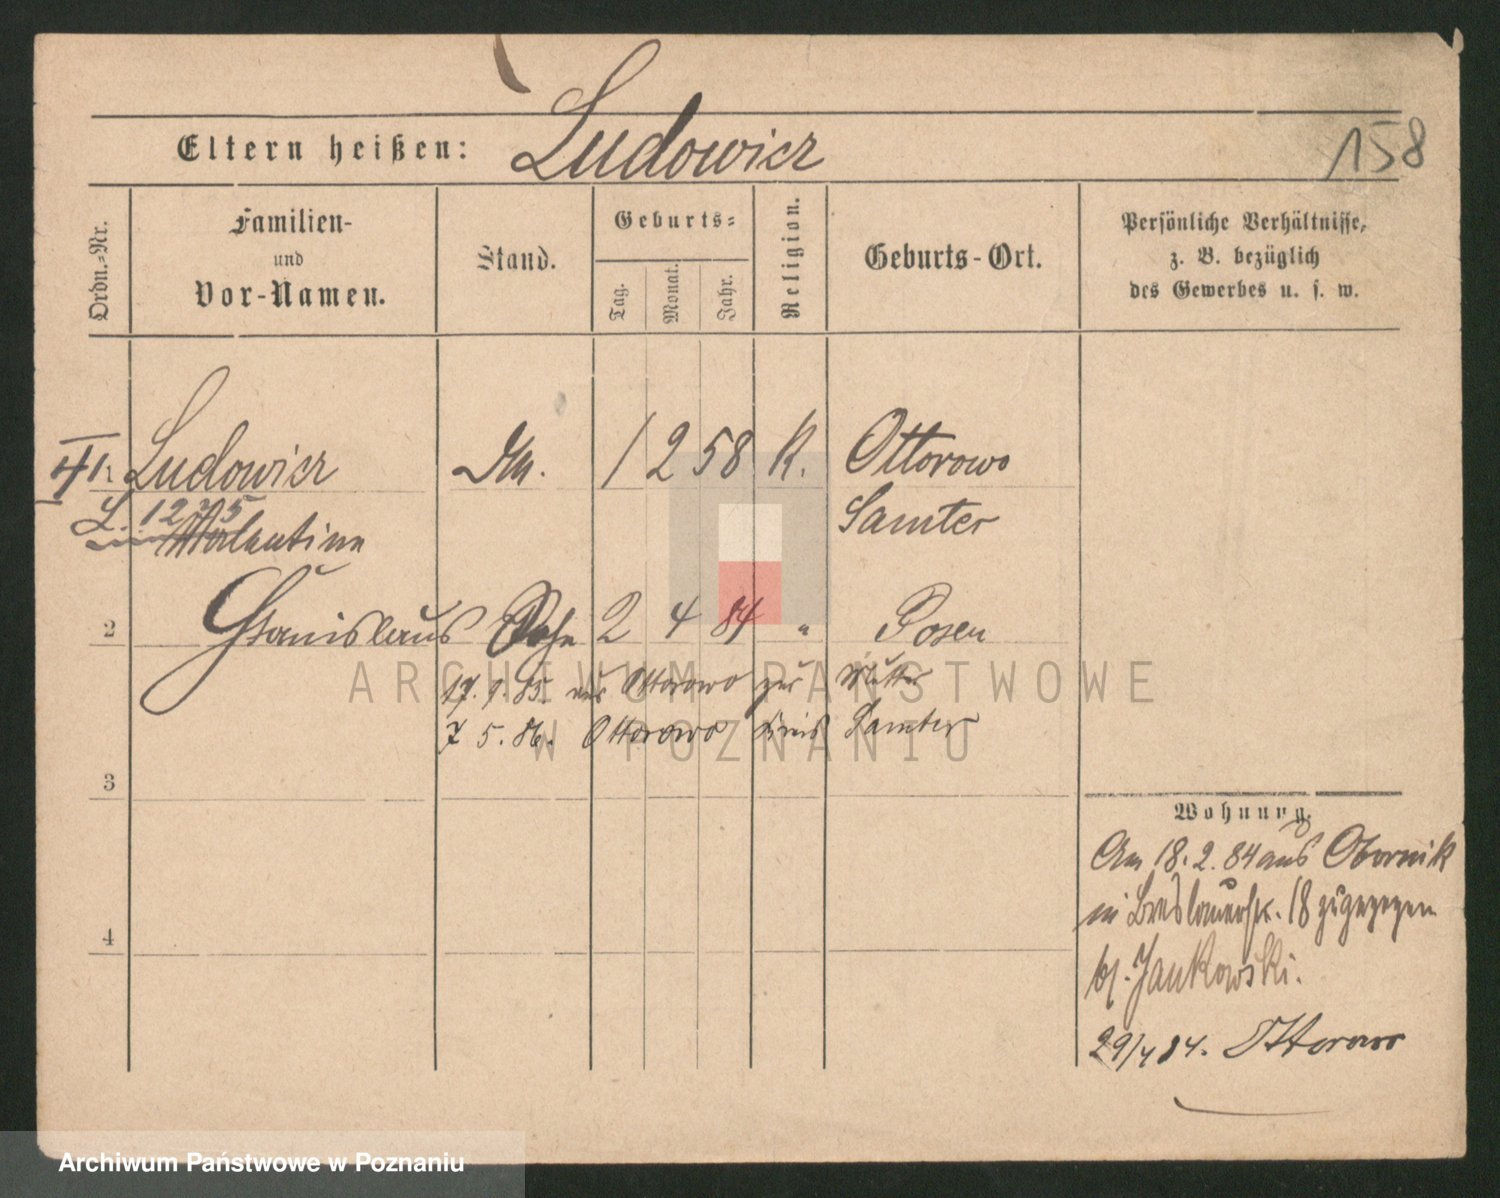 Eltern heißen: Ludowicz
158
Ordn.-Nr.
Familien-
und
Vor-Namen.
Stand.
Geburts-
Tag.
Monat.
Jahr.
Religion.
Geburts-Ort.
Persönliche Verhältnisse,
z. B. bezüglich
des Gewerbes u. s. w.
1 Ludowicz 1 2 58 K. Ottorowo
L. 1275 Samter
Valentine
2 Stanislaus Sohn 2 4 84 " Posen
17. 9. 85. aus Ottorowo zur Mutter
7 5. 86. Ottorowo Kreis Samter
3
4
Wohnung.
Am 18. 2. 84 aus Obornik
in Breslauerstr. 18 zugezogen
bf. Jankowski.
29/4 84. Ottorowo
ARCHIWUM PAŃSTWOWE
W POZNANIU
Archiwum Państwowe w Poznaniu